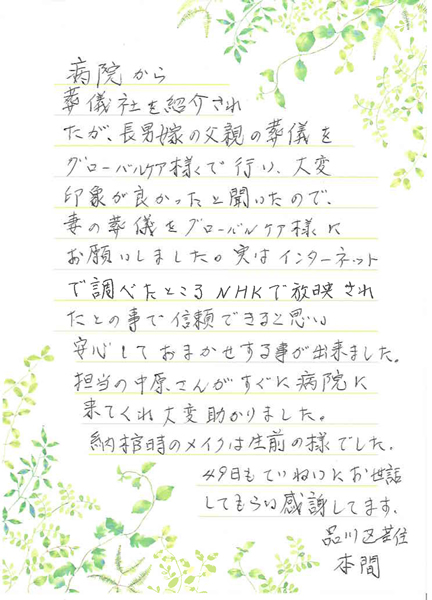 病院から
葬儀社を紹介され
たが、長男嫁の父親の葬儀を
グローバルケア様で行い、大変
印象が良かったと聞いたので、
妻の葬儀をグローバルケア様に
お願いしました。実はインターネット
で調べたところNHKで放映され
たとの事で信頼できると思い
安心しておまかせする事が出来ました。
担当の中原さんがすぐに病院に
来てくれ大変助かりました。
納棺時のメイクは生前の様でした。
49日もていねいにお世話
してもらい感謝してます。
品川区在住
本間